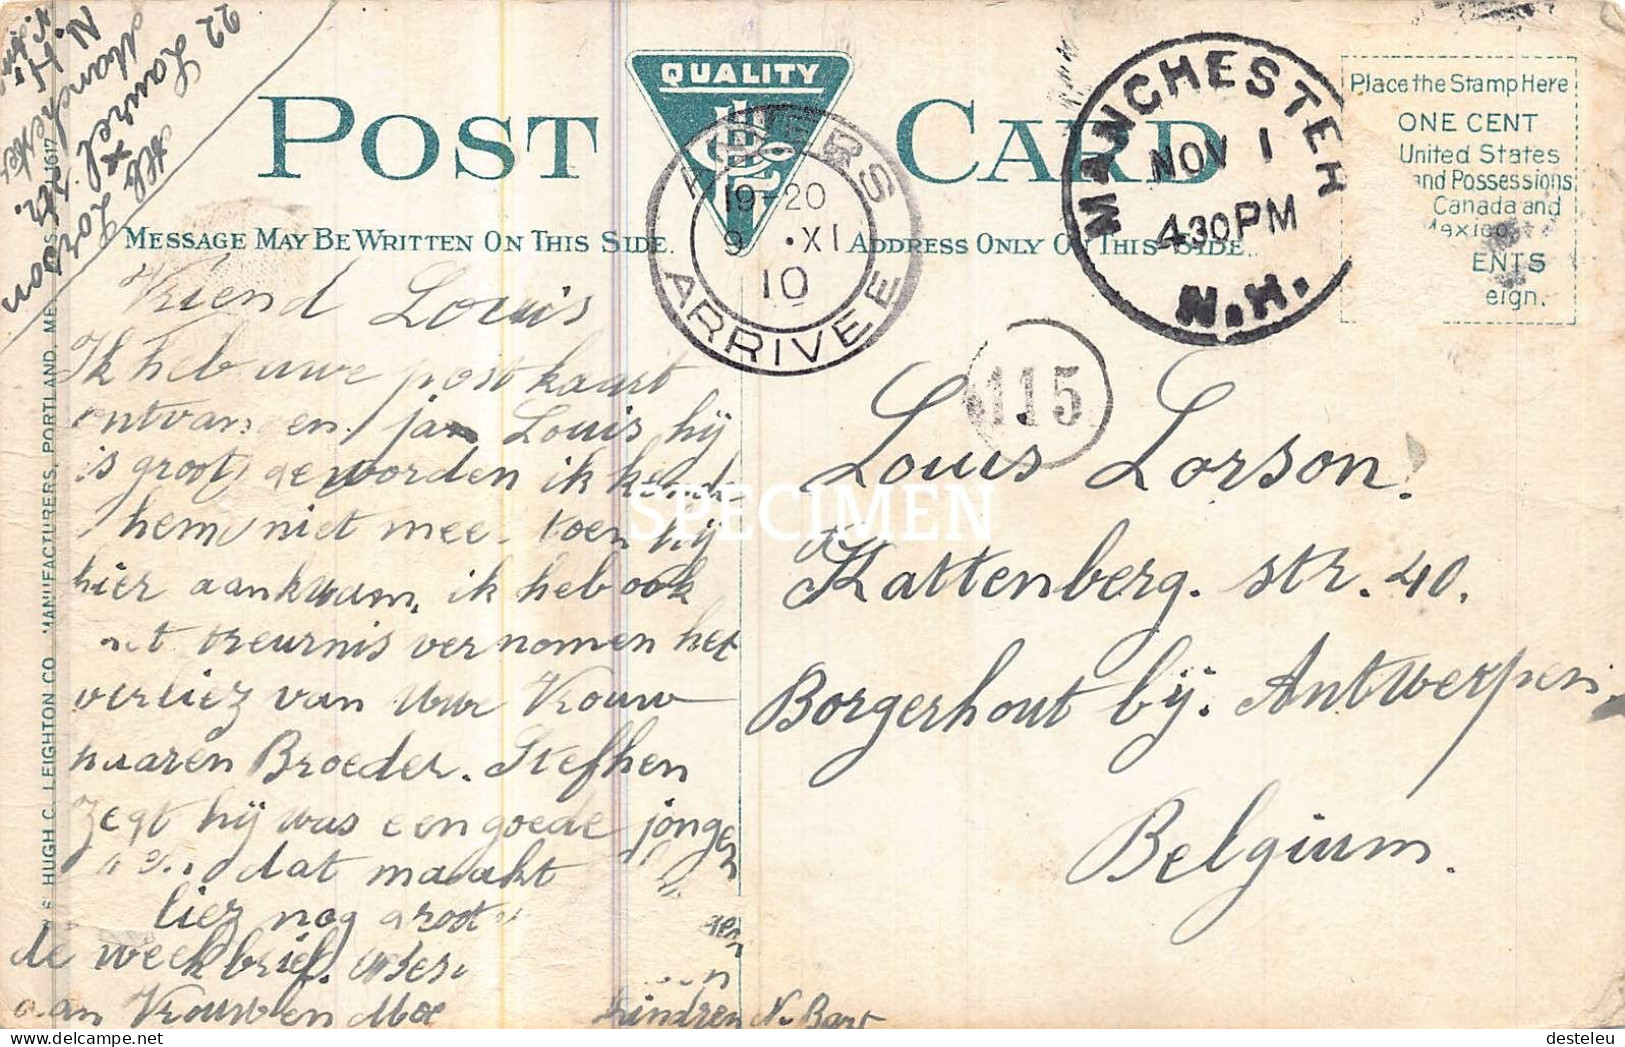 22 Laurel Str.
Manchester
N.H.
QUALITY
POST CARD
MESSAGE MAY BE WRITTEN ON THIS SIDE.
ADDRESS ONLY ON THIS SIDE.
ANVERS
19-20
9 • XI
10
ARRIVEE
MANCHESTER
NOV 1
430PM
N.H.
Place the Stamp Here
ONE CENT
United States
and Possessions
Canada and
Mexico
ENTS
eign.
115
HUGH C. LEIGHTON CO. MANUFACTURERS, PORTLAND, ME
1617
Vriend Louis
Ik heb uwe postkaart
ontvangen, ja Louis hij
is groot geworden ik kende
hem niet mee. toen hij
hier aankwam. ik heb ook
met treurnis vernomen het
verliez van Uwe Vrouw
haaren Broeder. Stefhen
zegt hij was een goede jongen
dat maakt
liez nog groot
de week brief.
aan Vrouw en Moe
kindren N. Bart
Louis Lorson.
Kattenberg. str. 40.
Borgerhout bij. Antwerpen.
Belgium.
SPECIMEN
www.delcampe.net
desteleu